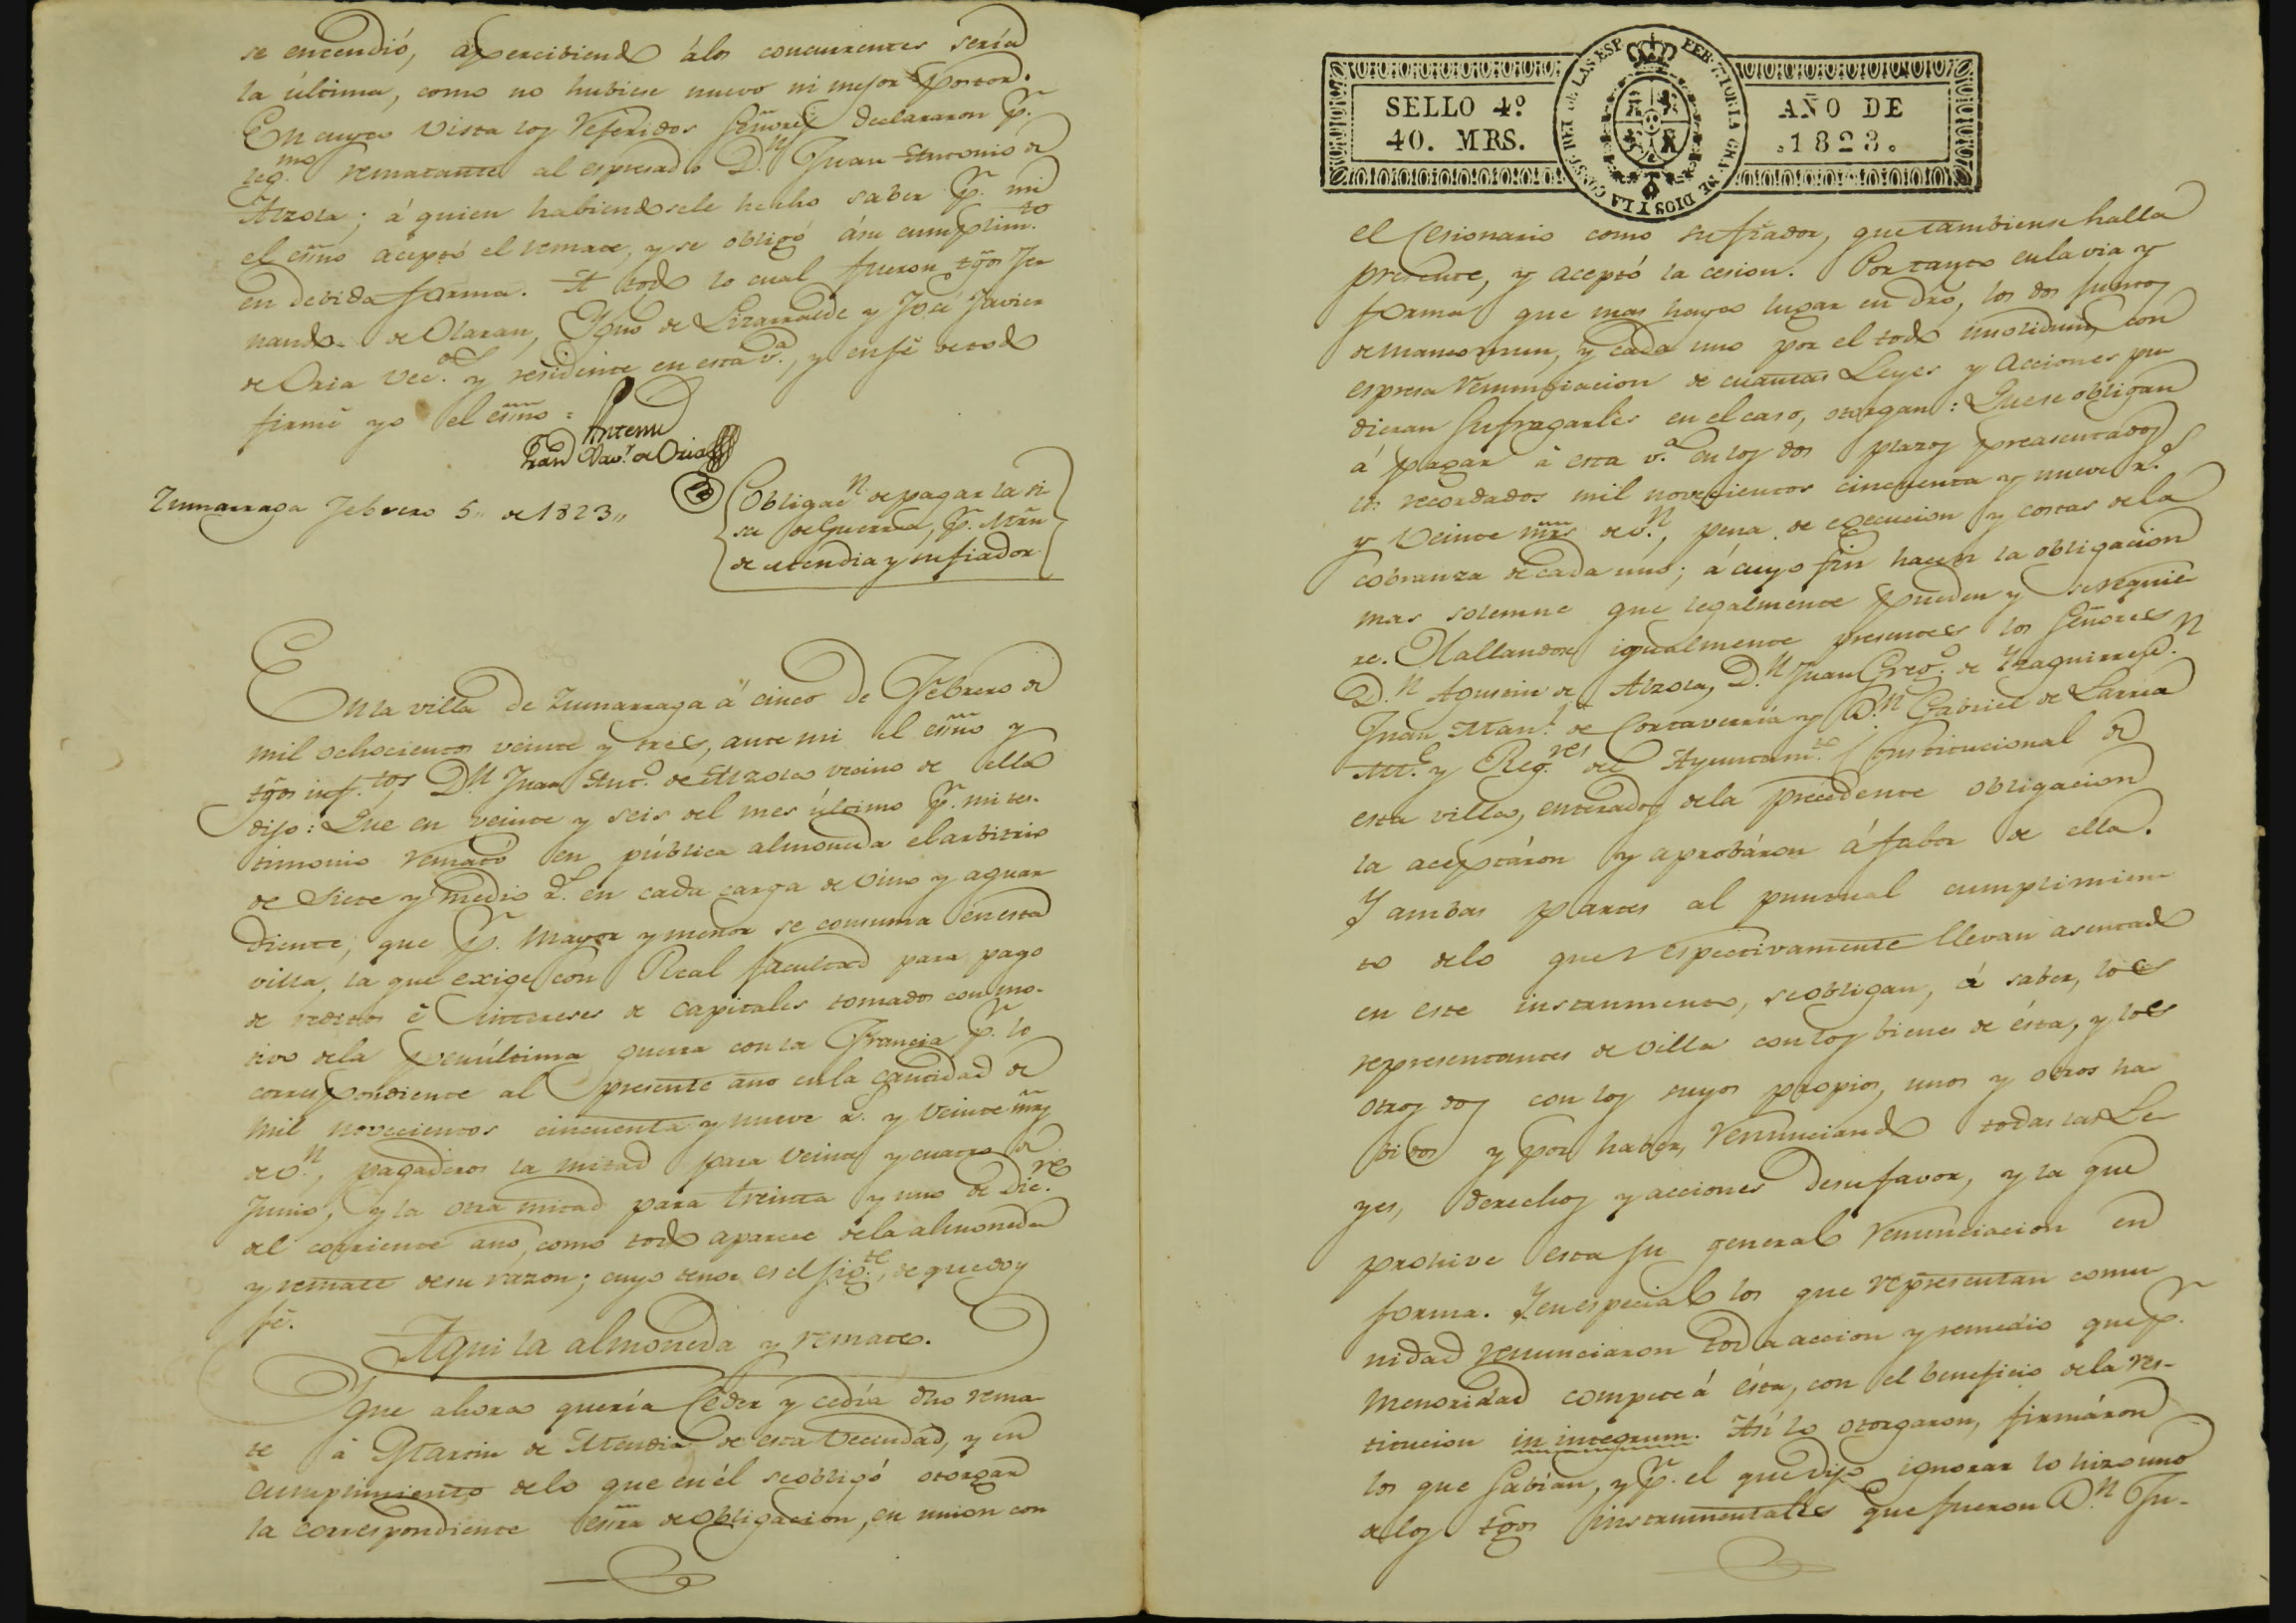 se encendió, apercibiendo álos concurrentes sería
la última, como no hubiese nuevo ni mejor postor.
En cuya vista los referidos Señores declararon p.r
leg.mo rematante al espresado D.n Juan Antonio de
Alzola; á quien habiendosele hecho saber p.r mi
el esño aceptó el remate, y se obligó ásu cumplim.to
en debida forma. A todo lo cual fueron tgõs Fer
nando de Olaran, Ygn.o de Lizarralde y José Javier
de Oria vec.os y residente en esta v.a, y enfé de todo
firmé yo el esño =
Antemi
Fran.co Xav.r de Oria
Zumarraga Febrero 5,, de 1823,,
Obligac.n de pagar la si
sa de Guerra, p.r Mrñ
de Mendia y su fiador
Enla villa de Zumarraga á cinco de Febrero de
mil ochocientos veinte y tres, ante mi el esño y
tgõs inf.tos D.n Juan Ant.o de Alzola vecino de ella
dijo: Que en veinte y seis del mes último p.r mi tes-
timonio remató en pública almoneda el arbitrio
de siete y medio r.s en cada carga de vino y aguar
diente, que p.r mayor y menor se consuma en esta
villa, la que exige con Real facultad para pago
de reditos é intereses de capitales tomados con mo-
tivo dela penúltima guerra con la Francia p.r lo
correspondiente al presente año enla cantidad de
mil novecientos cincuenta y nueve r.s y veinte mrs
de v.n, pagaderos la mitad para veinte y cuatro de
Junio, y la otra mitad para treinta y uno de Dic.re
del corriente año, como todo aparece dela almoneda
y remate desu razon; cuyo tenor es el sig.te, de que doy
fé.
Aqui la almoneda y remate.
Que ahora quería ceder y cedía dho rema
te á Martin de Mendia de esta vecindad, y en
cumplimiento delo que en él se obligó otorgar
la correspondiente esrã de obligacion, en union con
SELLO 4º
40. MRS.
AÑO DE
.1823.
DIOS Y LA CONST. REI DE LAS ESP.
el cesionario como su fiador, que tambiense halla
presente, y aceptó la cesion. Por tanto enla via y
forma que mas haya lugar en dro, los dos juntos
de mancomun, y cada uno por el todo insolidum, con
espresa renunciacion de cuantas Leyes y acciones pu
dieran sufragarles en el caso, otorgan: Que se obligan
á pagar á esta v.a en los dos plazos preasentados
los recordados mil novecientos cincuenta y nueve r.s
y veinte mrs de v.n, pena de egecucion y costas dela
cobranza de cada uno; á cuyo fin hacen la obligacion
mas solemne que legalmente pueden y se requie
re. Hallandose igualmente presentes los Señores
D.n Agustin de Alzola, D.n Juan Greg.o de Yzaguirre, D.n
Juan Man.l de Cortaverria y D.n Gabriel de Larrea
Al.e y Reg.res del Ayuntam.to Constitucional de
esta villa, enterados dela precedente obligacion
la aceptáron y aprobáron áfabor de ella.
Y ambas partes al puntual cumplimien
to delo que respectivamente llevan asentado
en este instrumento, se obligan, á saber, los
representantes de villa con los bienes de ésta, y los
otros dos con los suyos propios, unos y otros ha
bidos y por haber, renunciando todas las Le
yes, derechos y acciones desu favor, y la que
prohive esta su general renunciacion en
forma. Y en especial los que representan comu
nidad renunciaron toda accion y remedio que p.r
menoridad compete á ésta, con el beneficio dela res-
titucion in integrum. Así lo otorgaron, firmáron
los que sabían, y p.r el que dijo ignorar lo hizo uno
delos tgõs instrumentales que fueron D.n Ju-